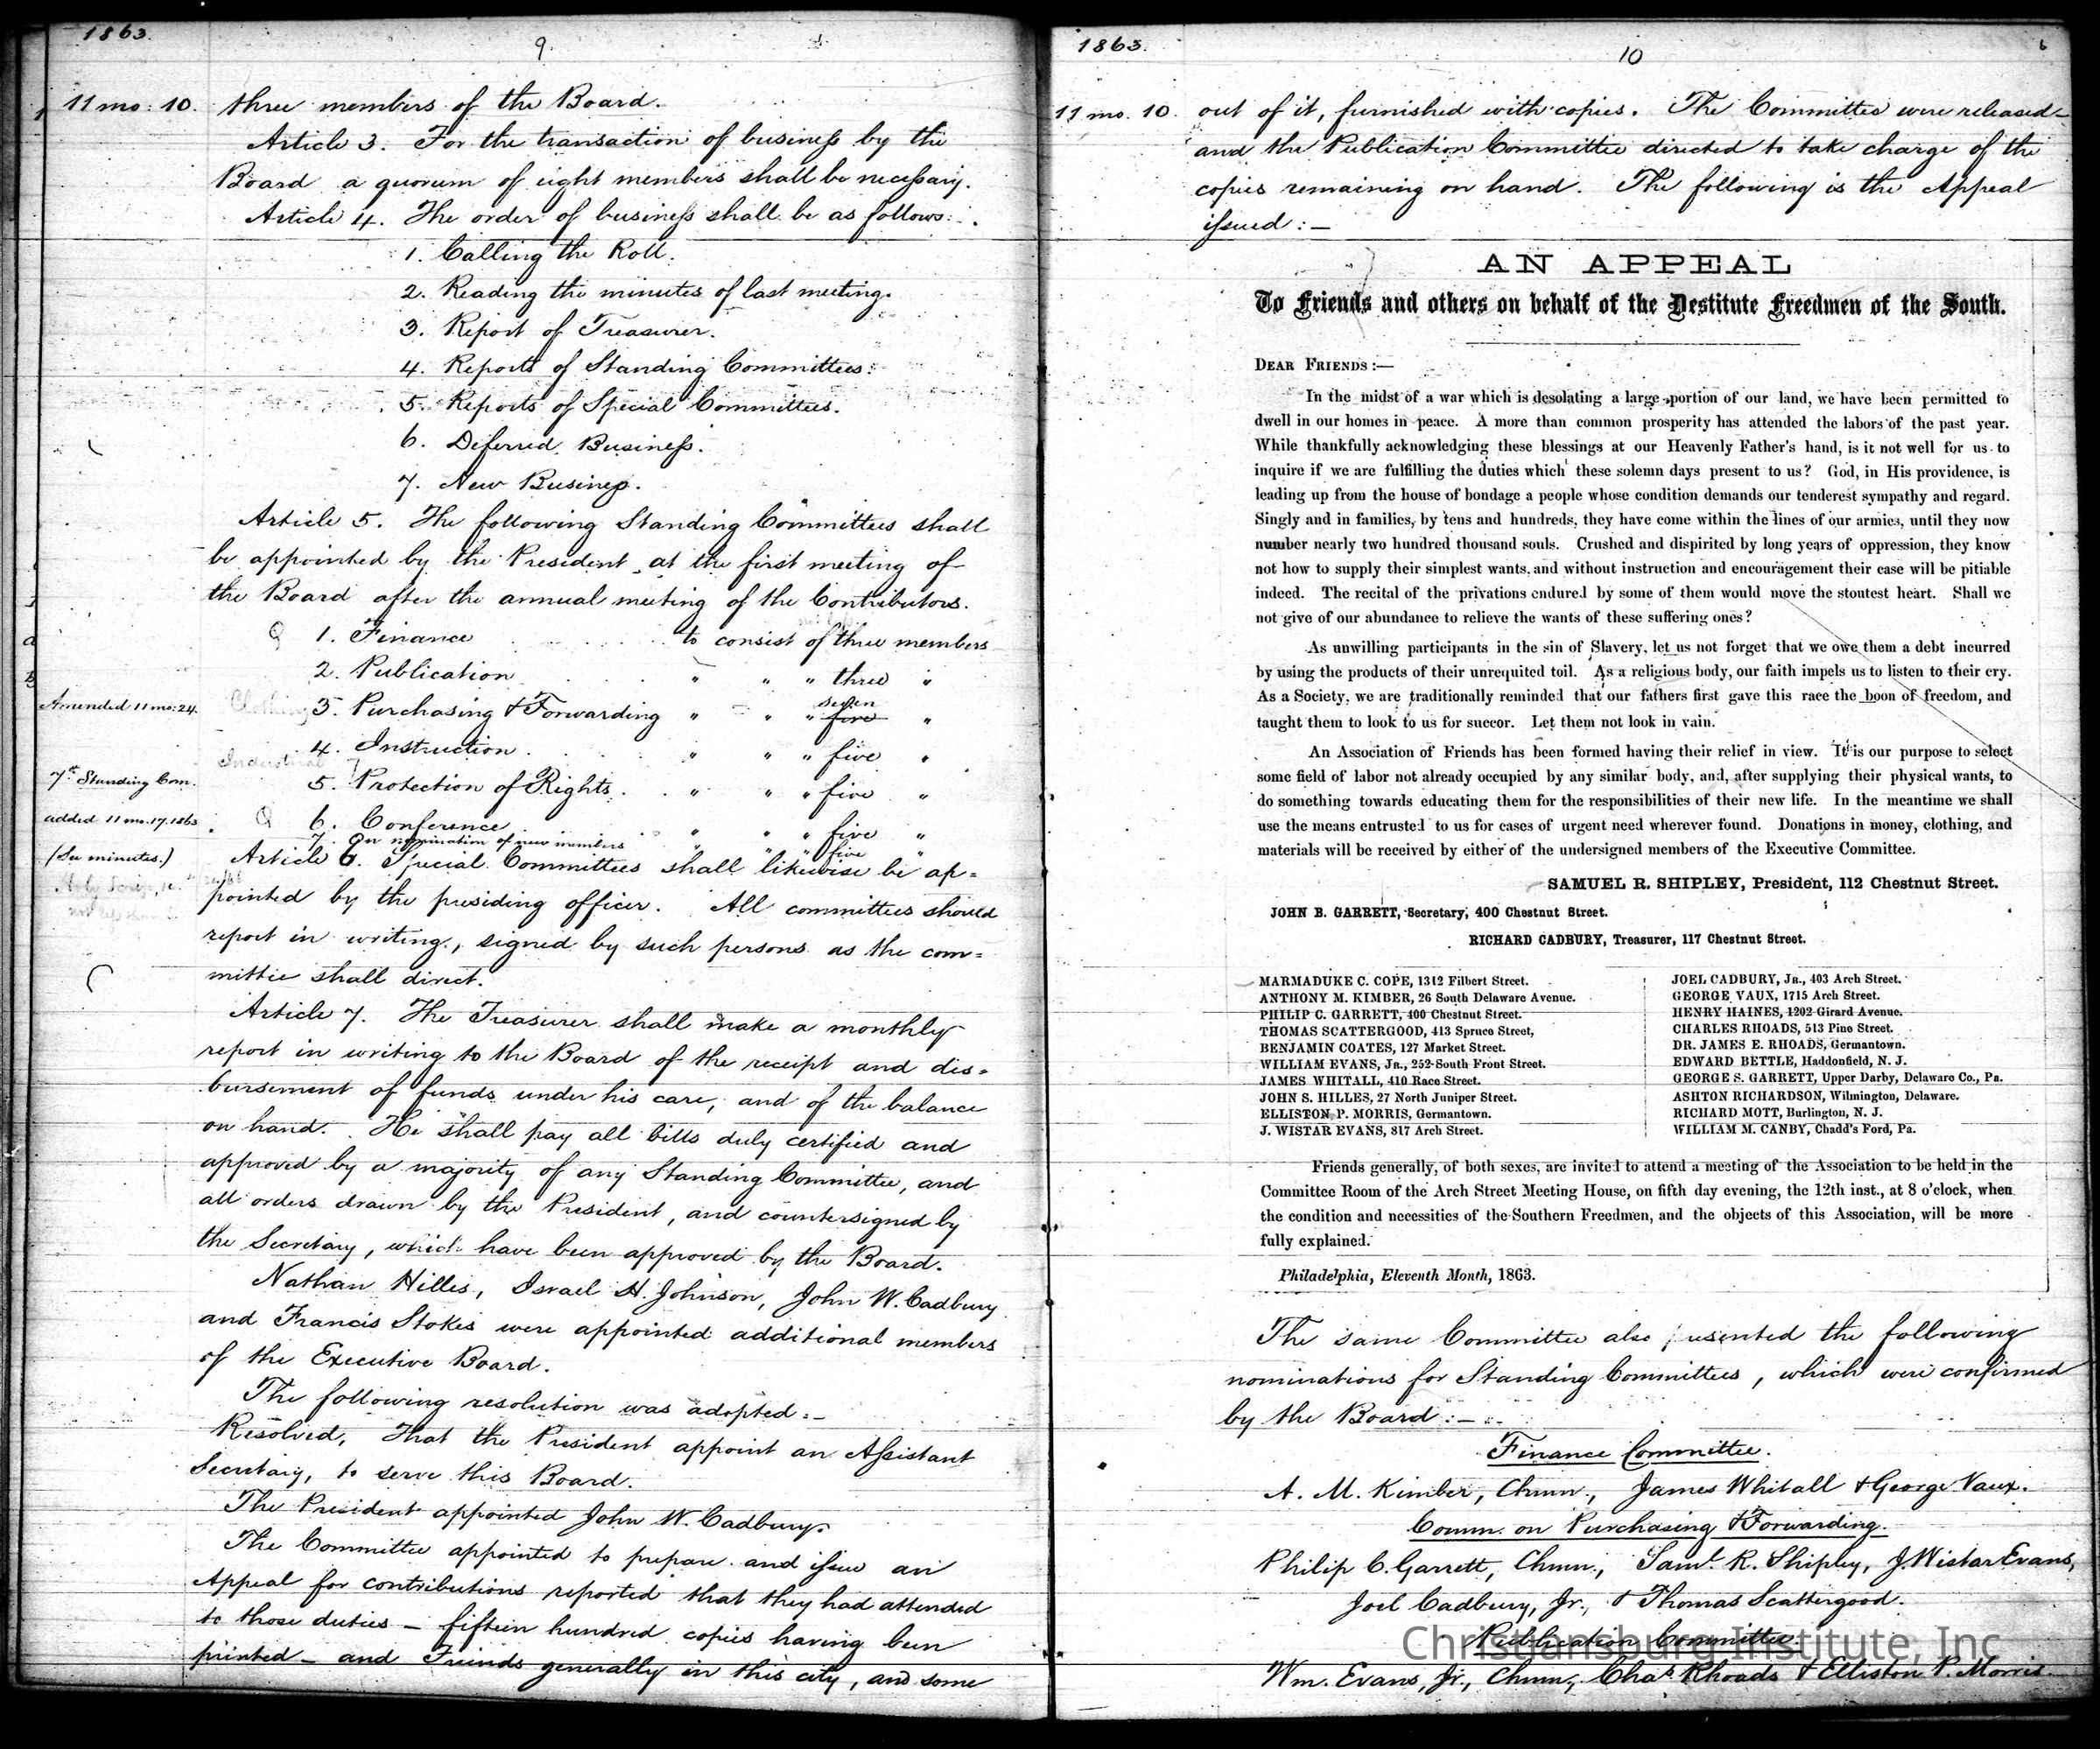 1863.
9
11 mo: 10. three members of the Board.
Article 3. For the transaction of business by the
Board a quorum of eight members shall be necessary.
Article 4. The order of business shall be as follows:
1. Calling the Roll.
2. Reading the minutes of last meeting.
3. Report of Treasurer.
4. Reports of Standing Committees.
5. Reports of Special Committees.
6. Deferred Business.
7. New Business.
Article 5. The following Standing Committees shall
be appointed by the President at the first meeting of
the Board after the annual meeting of the Contributors.
1. Finance to consist of three members
2. Publication " " " three "
Amended 11 mo: 24. Clothing 3. Purchasing & Forwarding " " " seven five "
4. Instruction " " " five "
Industrial
7th Standing Com. 5. Protection of Rights. " " " five "
added 11 mo. 17. 1863 6. Conference " " " five "
7. On nomination of new members " " " five "
(See minutes.) Article 6. Special Committees shall likewise be ap=
pointed by the presiding officer. All committees should
report in writing, signed by such persons as the com=
mittee shall direct.
Article 7. The Treasurer shall make a monthly
report in writing to the Board of the receipt and dis=
bursement of funds under his care, and of the balance
on hand. He shall pay all bills duly certified and
approved by a majority of any Standing Committee, and
all orders drawn by the President, and countersigned by
the Secretary, which have been approved by the Board.
Nathan Hilles, Israel H. Johnson, John W. Cadbury
and Francis Stokes were appointed additional members
of the Executive Board.
The following resolution was adopted:–
Resolved, That the President appoint an Assistant
Secretary, to serve this Board.
The President appointed John W. Cadbury.
The Committee appointed to prepare and issue an
Appeal for contributions reported that they had attended
to those duties – fifteen hundred copies having been
printed – and Friends generally in this city, and some
1863.
10
11 mo. 10. out of it, furnished with copies. The Committee were released
and the Publication Committee directed to take charge of the
copies remaining on hand. The following is the Appeal
issued:–
AN APPEAL
To Friends and others on behalf of the Destitute Freedmen of the South.
DEAR FRIENDS:—
In the midst of a war which is desolating a large portion of our land, we have been permitted to
dwell in our homes in peace. A more than common prosperity has attended the labors of the past year.
While thankfully acknowledging these blessings at our Heavenly Father's hand, is it not well for us to
inquire if we are fulfilling the duties which these solemn days present to us? God, in His providence, is
leading up from the house of bondage a people whose condition demands our tenderest sympathy and regard.
Singly and in families, by tens and hundreds, they have come within the lines of our armies, until they now
number nearly two hundred thousand souls. Crushed and dispirited by long years of oppression, they know
not how to supply their simplest wants, and without instruction and encouragement their case will be pitiable
indeed. The recital of the privations endured by some of them would move the stoutest heart. Shall we
not give of our abundance to relieve the wants of these suffering ones?
As unwilling participants in the sin of Slavery, let us not forget that we owe them a debt incurred
by using the products of their unrequited toil. As a religious body, our faith impels us to listen to their cry.
As a Society, we are traditionally reminded that our fathers first gave this race the boon of freedom, and
taught them to look to us for succor. Let them not look in vain.
An Association of Friends has been formed having their relief in view. It is our purpose to select
some field of labor not already occupied by any similar body, and, after supplying their physical wants, to
do something towards educating them for the responsibilities of their new life. In the meantime we shall
use the means entrusted to us for cases of urgent need wherever found. Donations in money, clothing, and
materials will be received by either of the undersigned members of the Executive Committee.
SAMUEL R. SHIPLEY, President, 112 Chestnut Street.
JOHN B. GARRETT, Secretary, 400 Chestnut Street.
RICHARD CADBURY, Treasurer, 117 Chestnut Street.
MARMADUKE C. COPE, 1312 Filbert Street.
ANTHONY M. KIMBER, 26 South Delaware Avenue.
PHILIP C. GARRETT, 400 Chestnut Street.
THOMAS SCATTERGOOD, 413 Spruce Street,
BENJAMIN COATES, 127 Market Street.
WILLIAM EVANS, JR., 252 South Front Street.
JAMES WHITALL, 410 Race Street.
JOHN S. HILLES, 27 North Juniper Street.
ELLISTON P. MORRIS, Germantown.
J. WISTAR EVANS, 817 Arch Street.
JOEL CADBURY, JR., 403 Arch Street.
GEORGE VAUX, 1715 Arch Street.
HENRY HAINES, 1202 Girard Avenue.
CHARLES RHOADS, 513 Pine Street.
DR. JAMES E. RHOADS, Germantown.
EDWARD BETTLE, Haddonfield, N. J.
GEORGE S. GARRETT, Upper Darby, Delaware Co., Pa.
ASHTON RICHARDSON, Wilmington, Delaware.
RICHARD MOTT, Burlington, N. J.
WILLIAM M. CANBY, Chadd's Ford, Pa.
Friends generally, of both sexes, are invited to attend a meeting of the Association to be held in the
Committee Room of the Arch Street Meeting House, on fifth day evening, the 12th inst., at 8 o'clock, when
the condition and necessities of the Southern Freedmen, and the objects of this Association, will be more
fully explained.
Philadelphia, Eleventh Month, 1863.
The same Committee also presented the following
nominations for Standing Committees, which were confirmed
by the Board:–
Finance Committee.
A. M. Kimber, Chmn., James Whitall & George Vaux.
Comm. on Purchasing & Forwarding.
Philip C. Garrett, Chmn., Saml. R. Shipley, J. Wistar Evans,
Joel Cadbury, Jr., & Thomas Scattergood.
Publication Committee.
Wm. Evans, Jr., Chmn., Chas. Rhoads & Elliston P. Morris
Christiansburg Institute, Inc